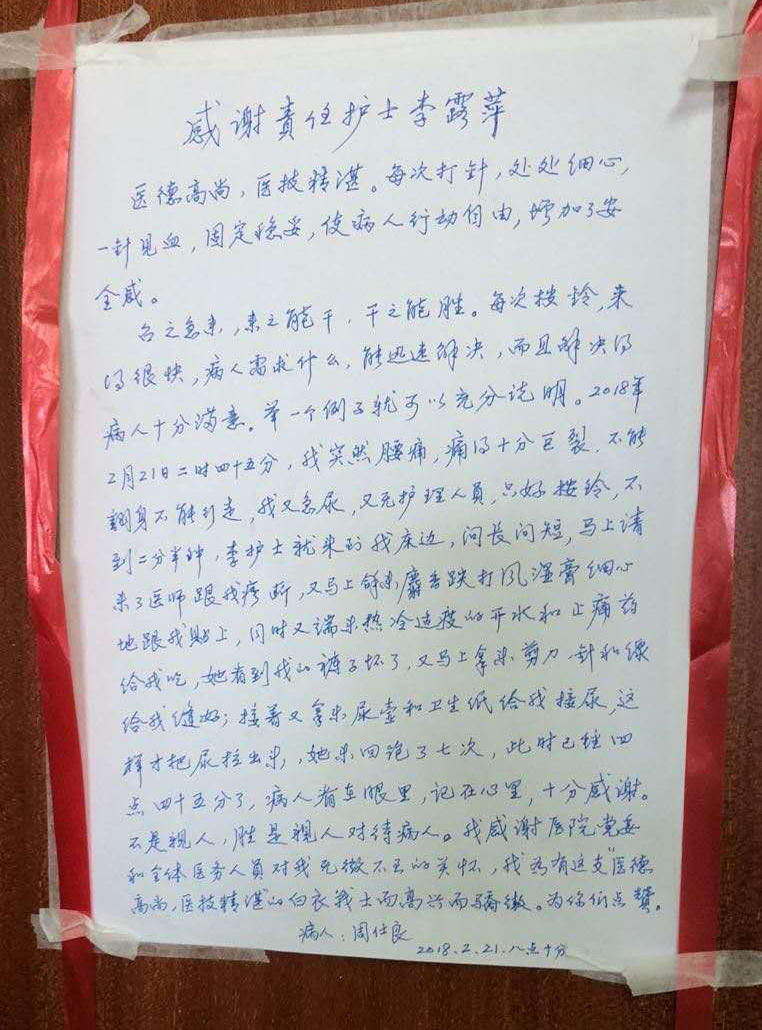 感谢责任护士李露萍
医德高尚，医技精湛。每次打针，处处细心，
一针见血，固定稳妥，使病人行动自由，增加了安
全感。
召之急来，来之能干，干之能胜。每次按铃，来
得很快，病人需求什么，能迅速解决，而且解决得
病人十分满意。举一个例子就可以充分说明。2018年
2月21日二时四十五分，我突然腰痛，痛得十分巨裂，不能
翻身不能行走，我又急尿，又无护理人员，只好按铃，不
到二分半钟，李护士就来到我床边，问长问短，马上请
来了医师跟我疹断，又马上拿来麝香跌打风湿膏细心
地跟我贴上，同时又端来热冷适疲的开水和止痛药
给我吃，她看到我的裤子坏了，又马上拿来剪刀针和线
给我缝好；接着又拿来尿壶和卫生纸给我接尿，这
样才把尿拉出来，她来回跑了七次，此时已经四
点四十五分了，病人看在眼里，记在心里，十分感谢。
不是亲人，胜是亲人对待病人。我感谢医院党委
和全体医务人员对我无微不至的关怀，我为有这支“医德
高尚，医技精湛”的白衣战士而高兴而骄傲。为你们点赞。
病人：周仕良
2018.2.21.八点十分